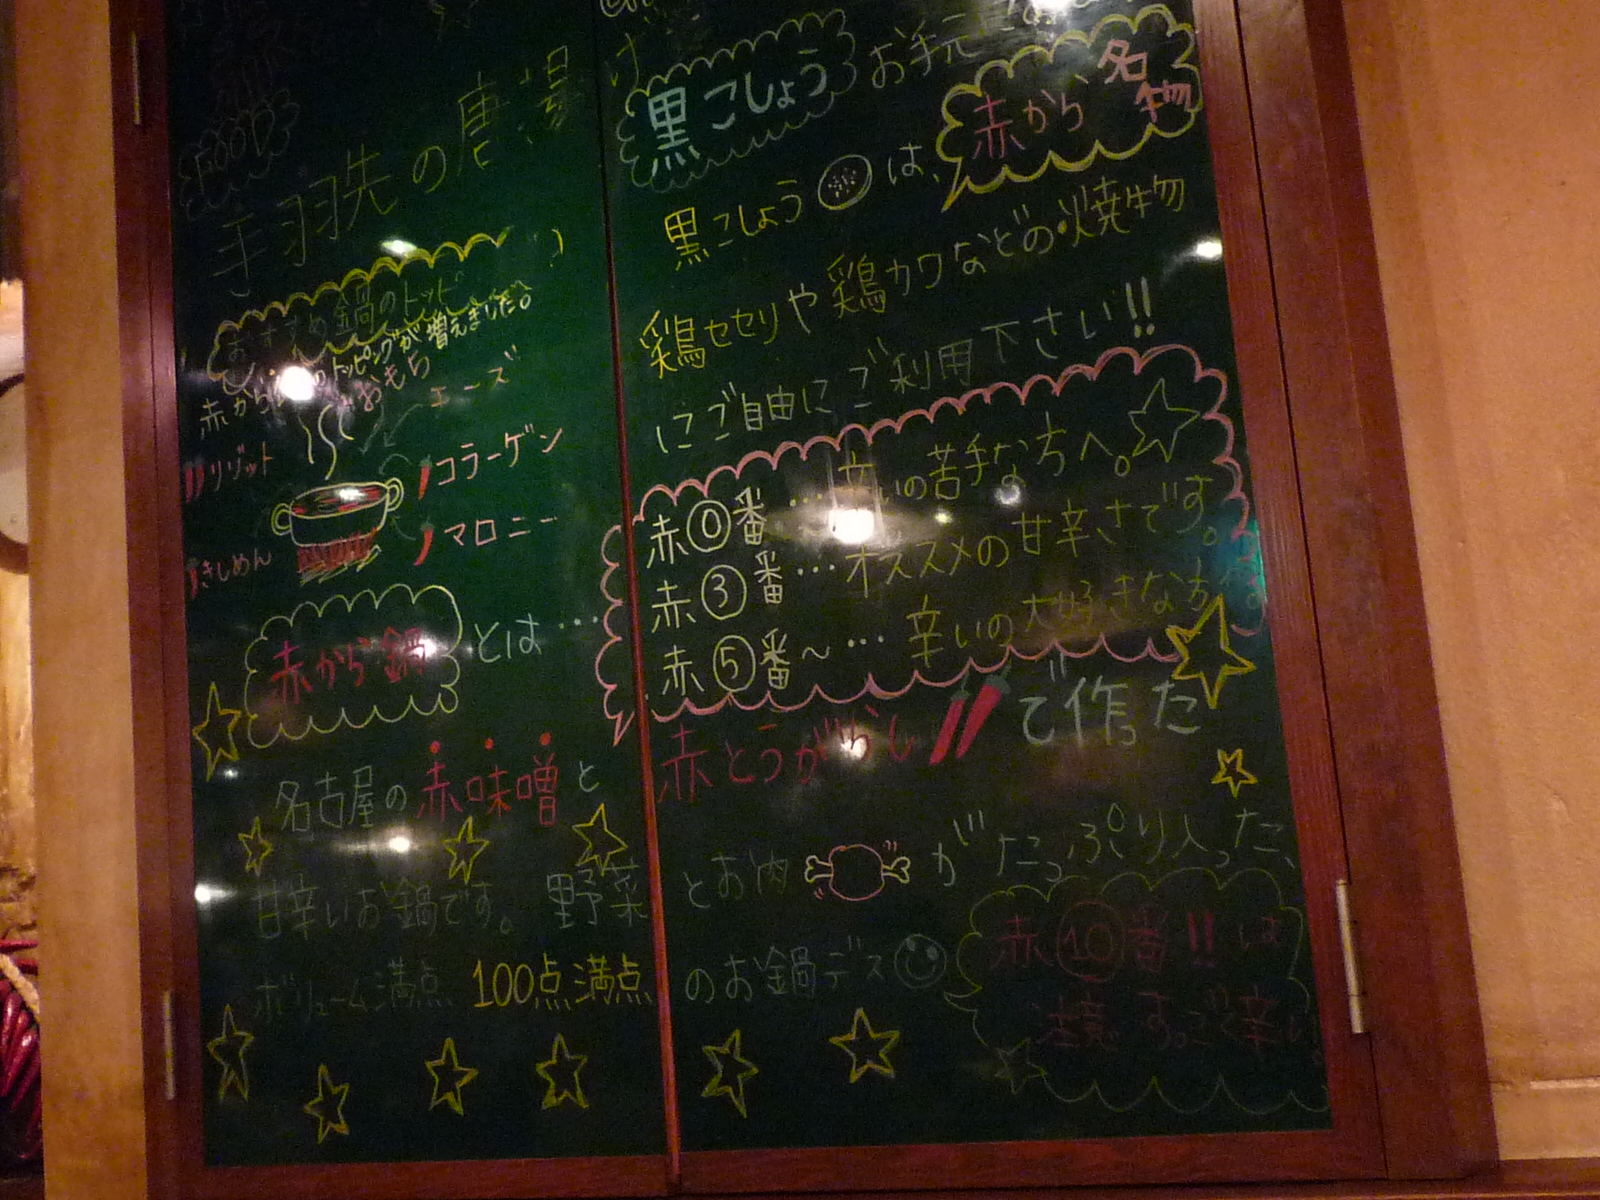 GOOD
手羽先の唐揚げ
おすすめ鍋のトッピ
赤から トッピングが増えました。
おもち
チーズ
リゾット
コラーゲン
きしめん
マロニー
赤から鍋とは…
名古屋の赤味噌と赤とうがらしで作った
甘辛いお鍋です。野菜とお肉がたっぷり入った、
ボリューム満点 100点満点のお鍋デス
黒こしょう お手元
赤から名物
黒こしょうは、
鶏セセリや鶏カワなどの焼物
にご自由にご利用下さい!!
赤⓪番…辛いの苦手な方へ。
赤③番…オススメの甘辛さです。
赤⑤番〜…辛いの大好きな方
赤⑩番!!は
注意 すっごく辛い